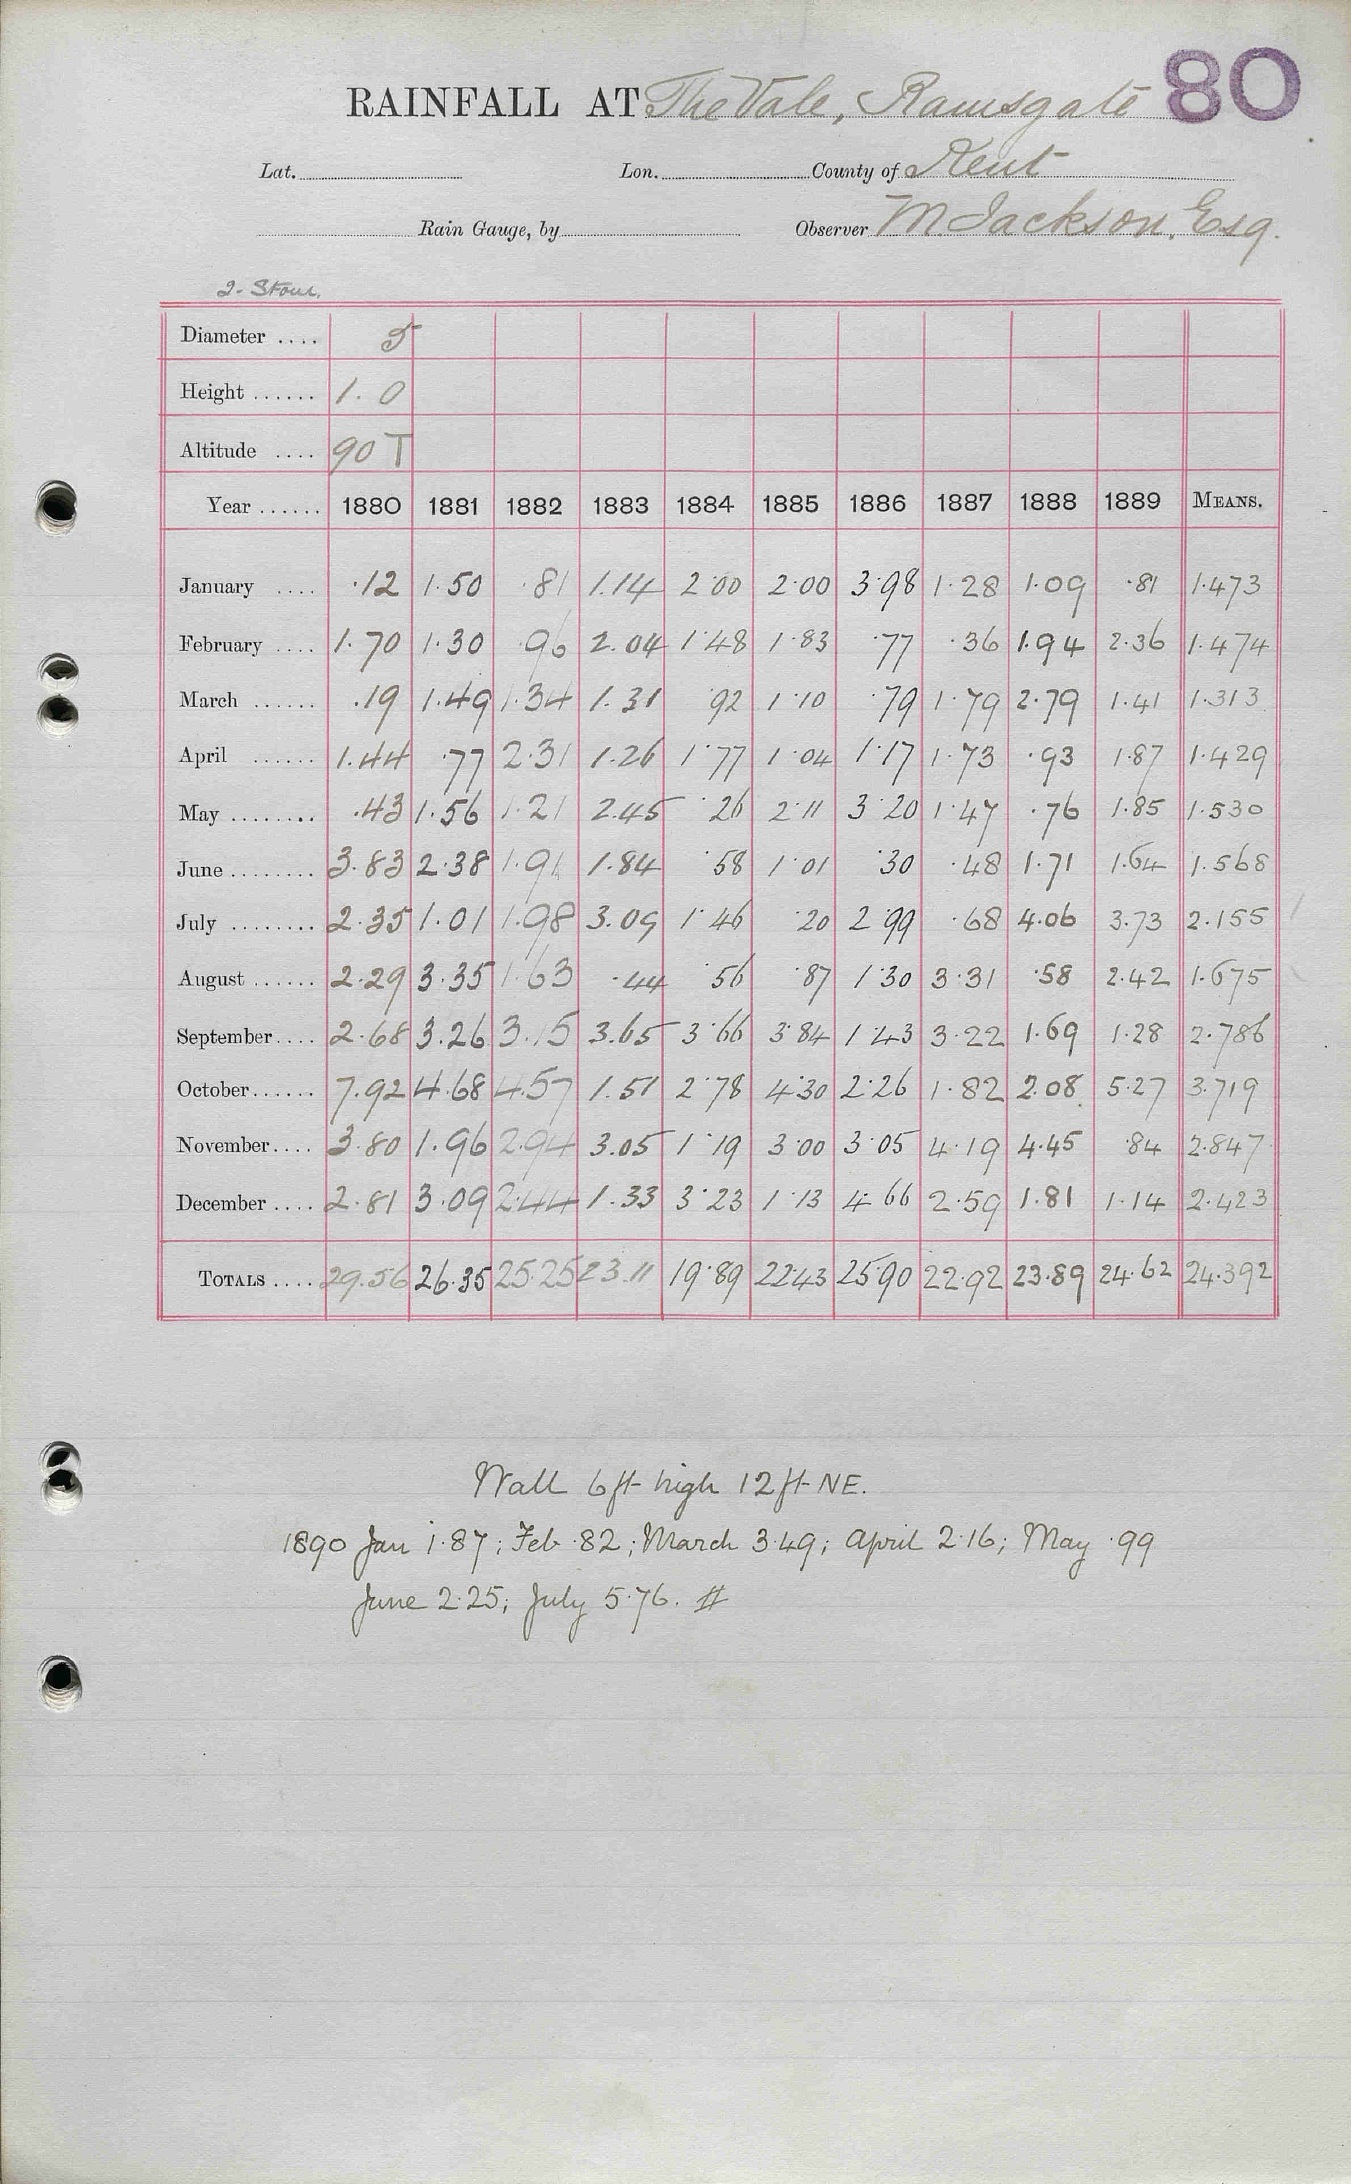 80
RAINFALL AT The Vale, Ramsgate
Lat. Lon. County of Kent
Rain Gauge, by Observer M. Jackson. Esq.
2- Stour.
Diameter .... 5
Height ...... 1. 0
Altitude .... 90 T
Year ...... 1880 1881 1882 1883 1884 1885 1886 1887 1888 1889 MEANS.
January .... .12 1.50 .81 1.14 2.00 2.00 3.98 1.28 1.09 .81 1.473
February .... 1.70 1.30 .96 2.04 1.48 1.83 .77 .36 1.94 2.36 1.474
March ...... .19 1.49 1.34 1.31 .92 1.10 .79 1.79 2.79 1.41 1.313
April ...... 1.44 .77 2.31 1.26 1.77 1.04 1.17 1.73 .93 1.87 1.429
May ........ .43 1.56 1.21 2.45 .26 2.11 3.20 1.47 .76 1.85 1.530
June ........ 3.83 2.38 1.91 1.84 .58 1.01 .30 .48 1.71 1.64 1.568
July ........ 2.35 1.01 1.98 3.09 1.46 .20 2.99 .68 4.06 3.73 2.155
August ...... 2.29 3.35 1.63 .44 .56 .87 1.30 3.31 .58 2.42 1.675
September .... 2.68 3.26 3.15 3.65 3.66 3.84 1.43 3.22 1.69 1.28 2.786
October ...... 7.92 4.68 4.57 1.51 2.78 4.30 2.26 1.82 2.08 5.27 3.719
November .... 3.80 1.96 2.94 3.05 1.19 3.00 3.05 4.19 4.45 .84 2.847
December .... 2.81 3.09 2.44 1.33 3.23 1.13 4.66 2.59 1.81 1.14 2.423
TOTALS .... 29.56 26.35 25.25 23.11 19.89 22.43 25.90 22.92 23.89 24.62 24.392
Wall 6ft high 12ft NE.
1890 Jan 1.87; Feb .82; March 3.49; April 2.16; May .99
June 2.25; July 5.76. #